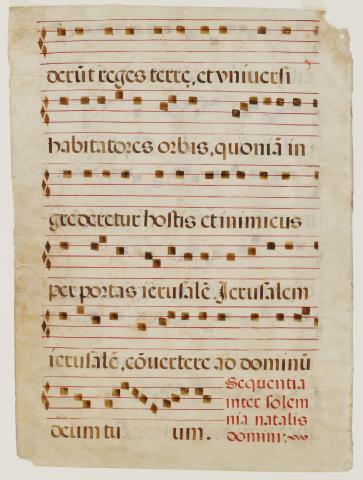 derūt reges terre, et vniuersi
habitatores orbis, quoniā in
grederetur hostis et inimicus
per portas ierusalē. Jerusalem
ierusalē, cōuertere ad dominū
deum tu um.
Sequentia
inter solem
nia natalis
domini: